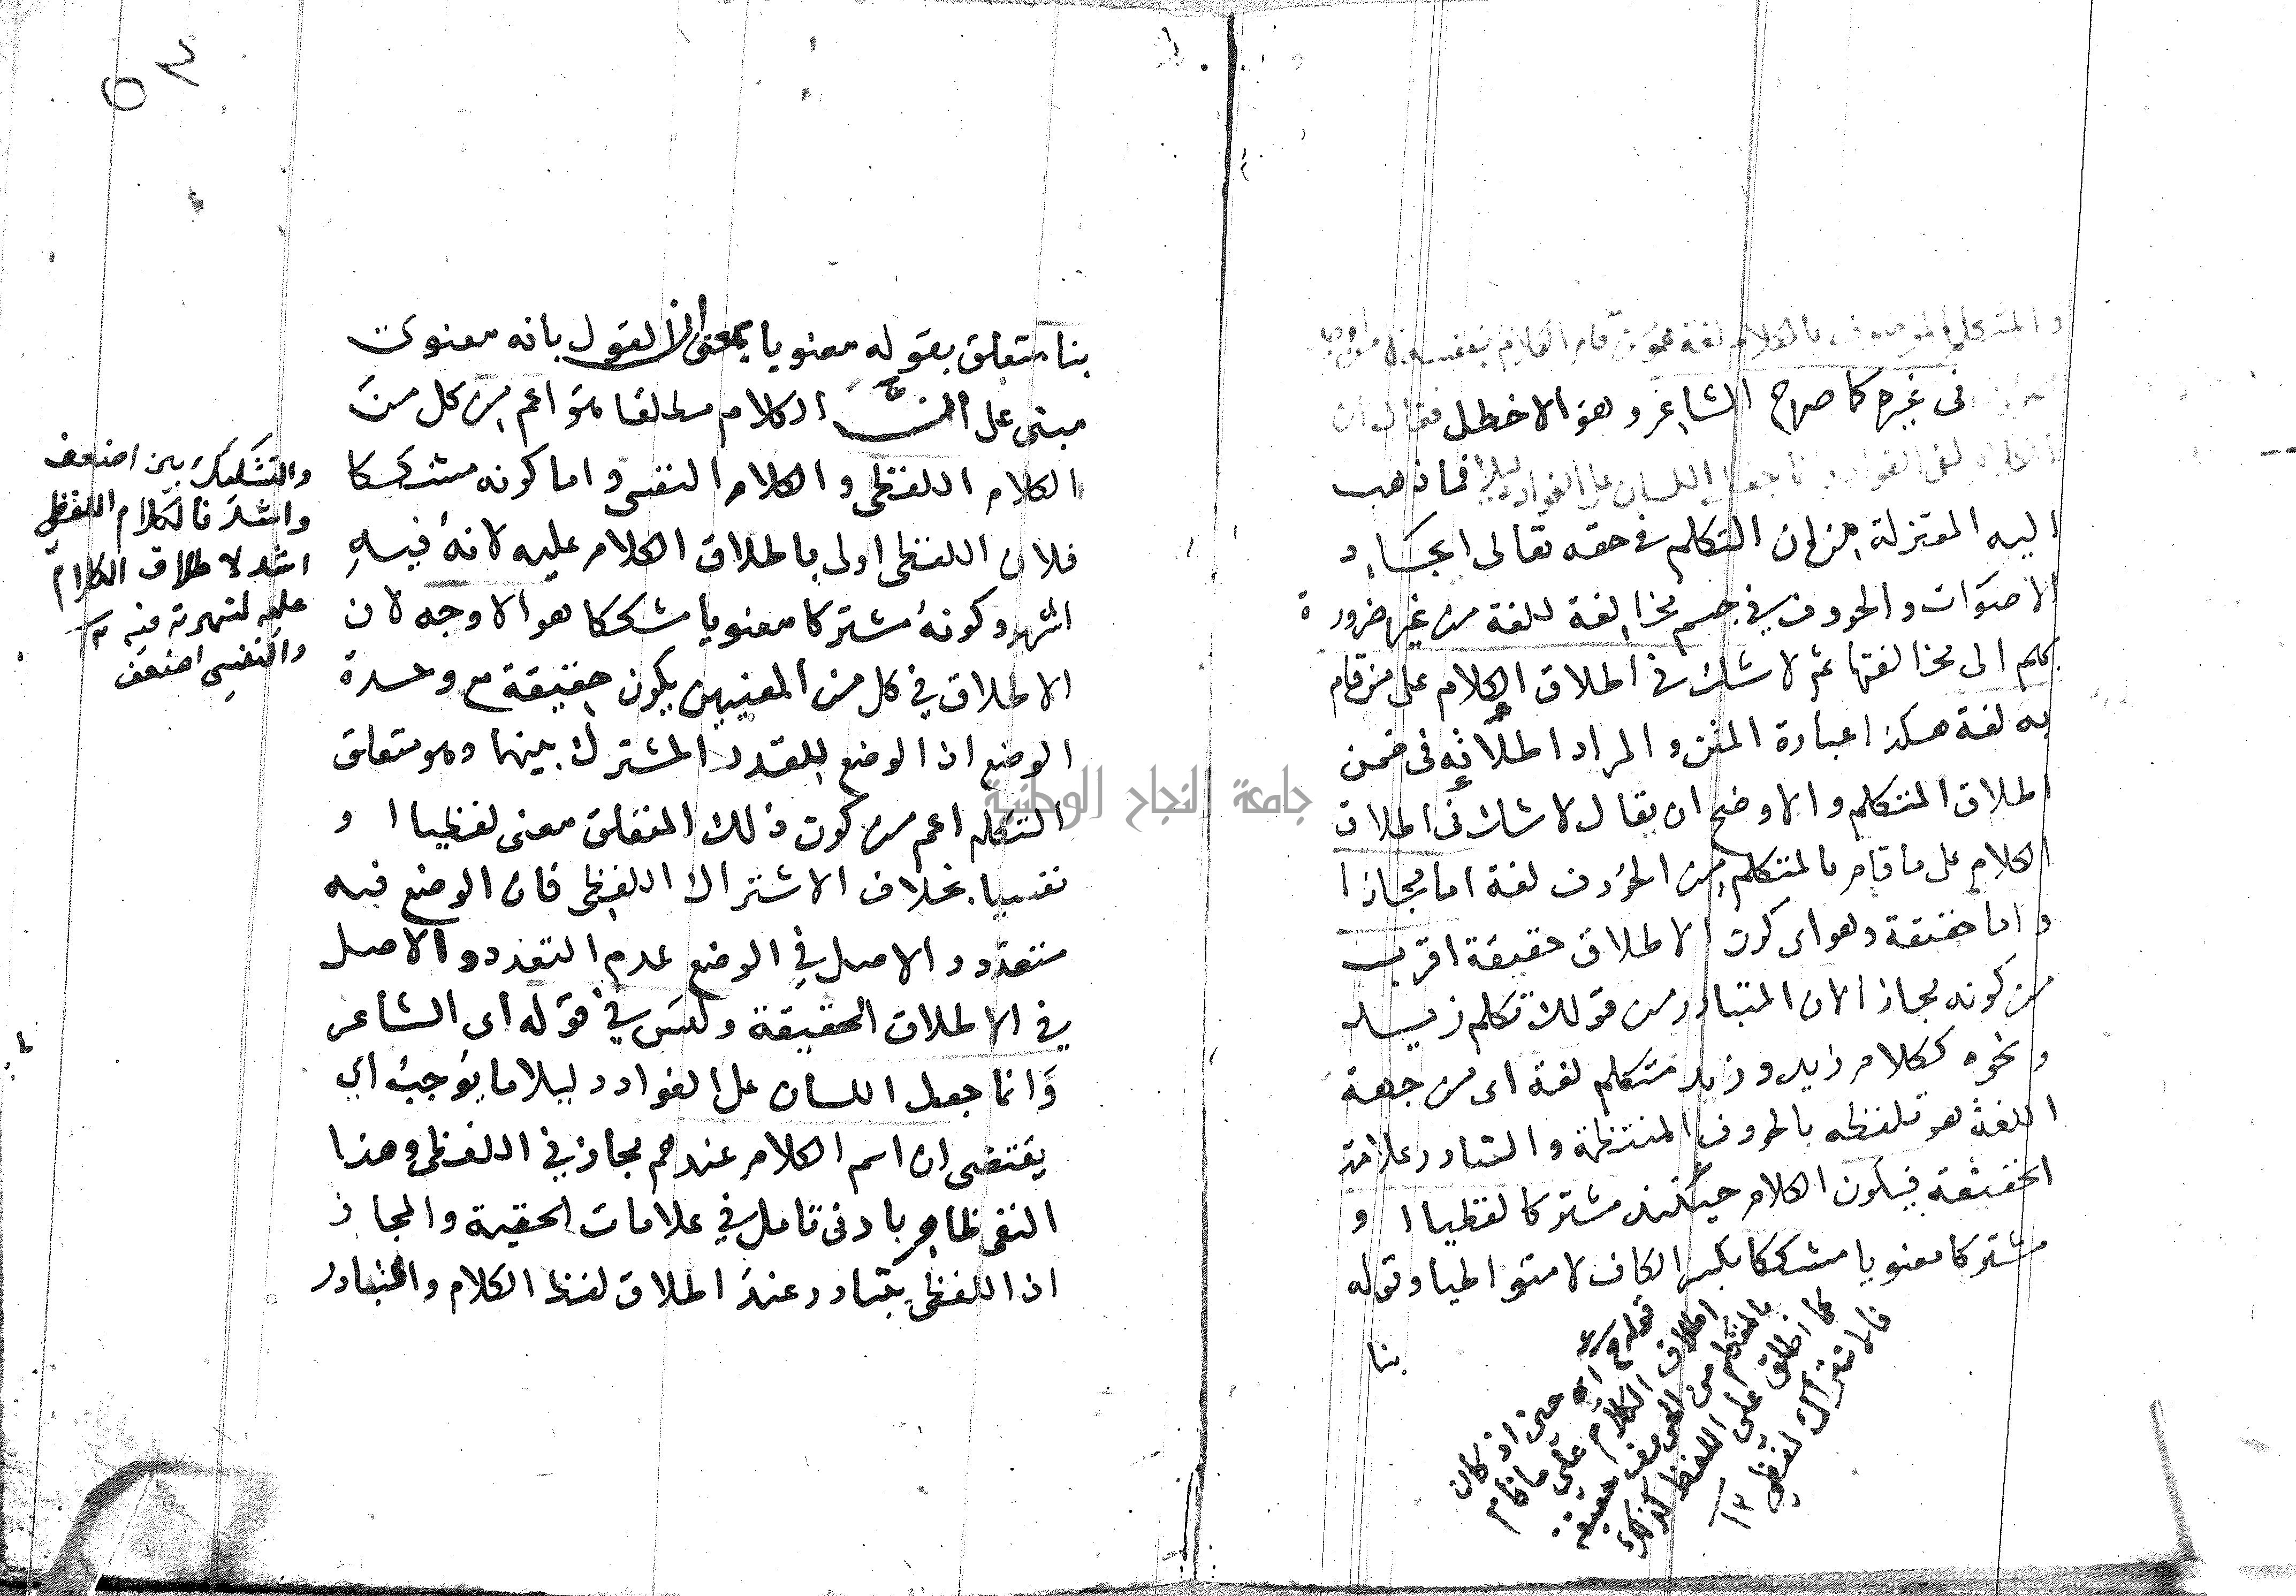 والمتكلم الموصوف بالكلام لغة من قام الكلام بنفسه لا من اوجد
في غيره كما صرح الشاعر وهو الاخطل فقال ان
الكلام لفي الفواد وانما جعل اللسان على الفواد دليلا فما ذهب
اليه المعتزلة من ان التكلم في حقه تعالى ايجاد
الاصوات والحروف في جسم مخالفة للغة من غير ضرورة
بكم الى مخالفتها ثم لا شك في اطلاق الكلام على من قام
به لغة هكذا عبارة المتن والمراد اطلاقه في ضمن
اطلاق المتكلم والاوضح ان يقال لا شك في اطلاق
الكلام على ما قام بالمتكلم من الحروف لغة اما مجازا
واما حقيقة وهو اى كون الاطلاق حقيقة اقرب
من كونه مجازا لان المتبادر من قولك تكلم زيد
ونحوه ككلام زيد وزيد متكلم لغة اى من جهة
اللغة هو تلفظه بالحروف المنتظمة والتبادر علامة
الحقيقة فيكون الكلام حينئذ مشتركا لفظيا ا و
مشتركا معنويا مشككا بكسر الكاف لا متواطيا وقوله
بنا
اى حين اذ كان
اطلاق الكلام على ما قام
بالمتكلم من الحروف حقيقة
كما اطلق على اللفظ كذلك
فالاشتراك لفظي ١٣
٥٢
بنا متعلق بقوله معنويا بمعنى ان القول بانه معنوى
مبنى على ان الكلام مطلقا هو اعم من كل من
الكلام اللفظى والكلام النفسى واما كونه مشككا
فلان اللفظى اولى باطلاق الكلام عليه لانه فيه
اشهر وكونه مشتركا معنويا مشككا هو الاوجه لان
الاطلاق في كل من المعنيين يكون حقيقة مع وحدة
الوضع اذ الوضع للقدر المشترك بينهما وهو متعلق
التكلم اعم من كون ذلك المتعلق معنى لفظيا ا و
نفسيا بخلاف الاشتراك اللفظى فان الوضع فيه
متعدد والاصل في الوضع عدم التعدد والاصل
في الاطلاق الحقيقة وليس في قوله اى الشاعر
وانما جعل اللسان على الفواد دليلا ما يوجب اي
يقتضى ان اسم الكلام عندهم مجاز في اللفظى وهذا
النفى ظاهر بادنى تامل في علامات الحقيقة والمجاز
اذ اللفظى يتبادر عند اطلاق لفظ الكلام والتبادر
والتشكيك بين اضعف
واشد فالكلام اللفظي
اشد لاطلاق الكلام
عليه لشهرته فيه
والنفسي اضعف
جامعة النجاح الوطنية